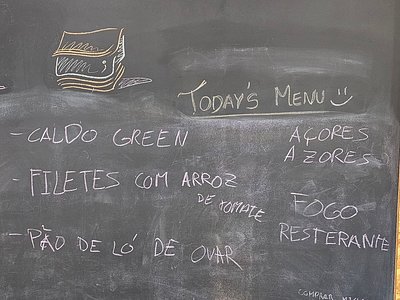 TODAY'S MENU
- CALDO GREEN
- FILETES COM ARROZ
DE TOMATE
- PÃO DE LÓ DE OVAR
AÇORES
AZORES
FOGO
RESTERANTE
COMPRAR